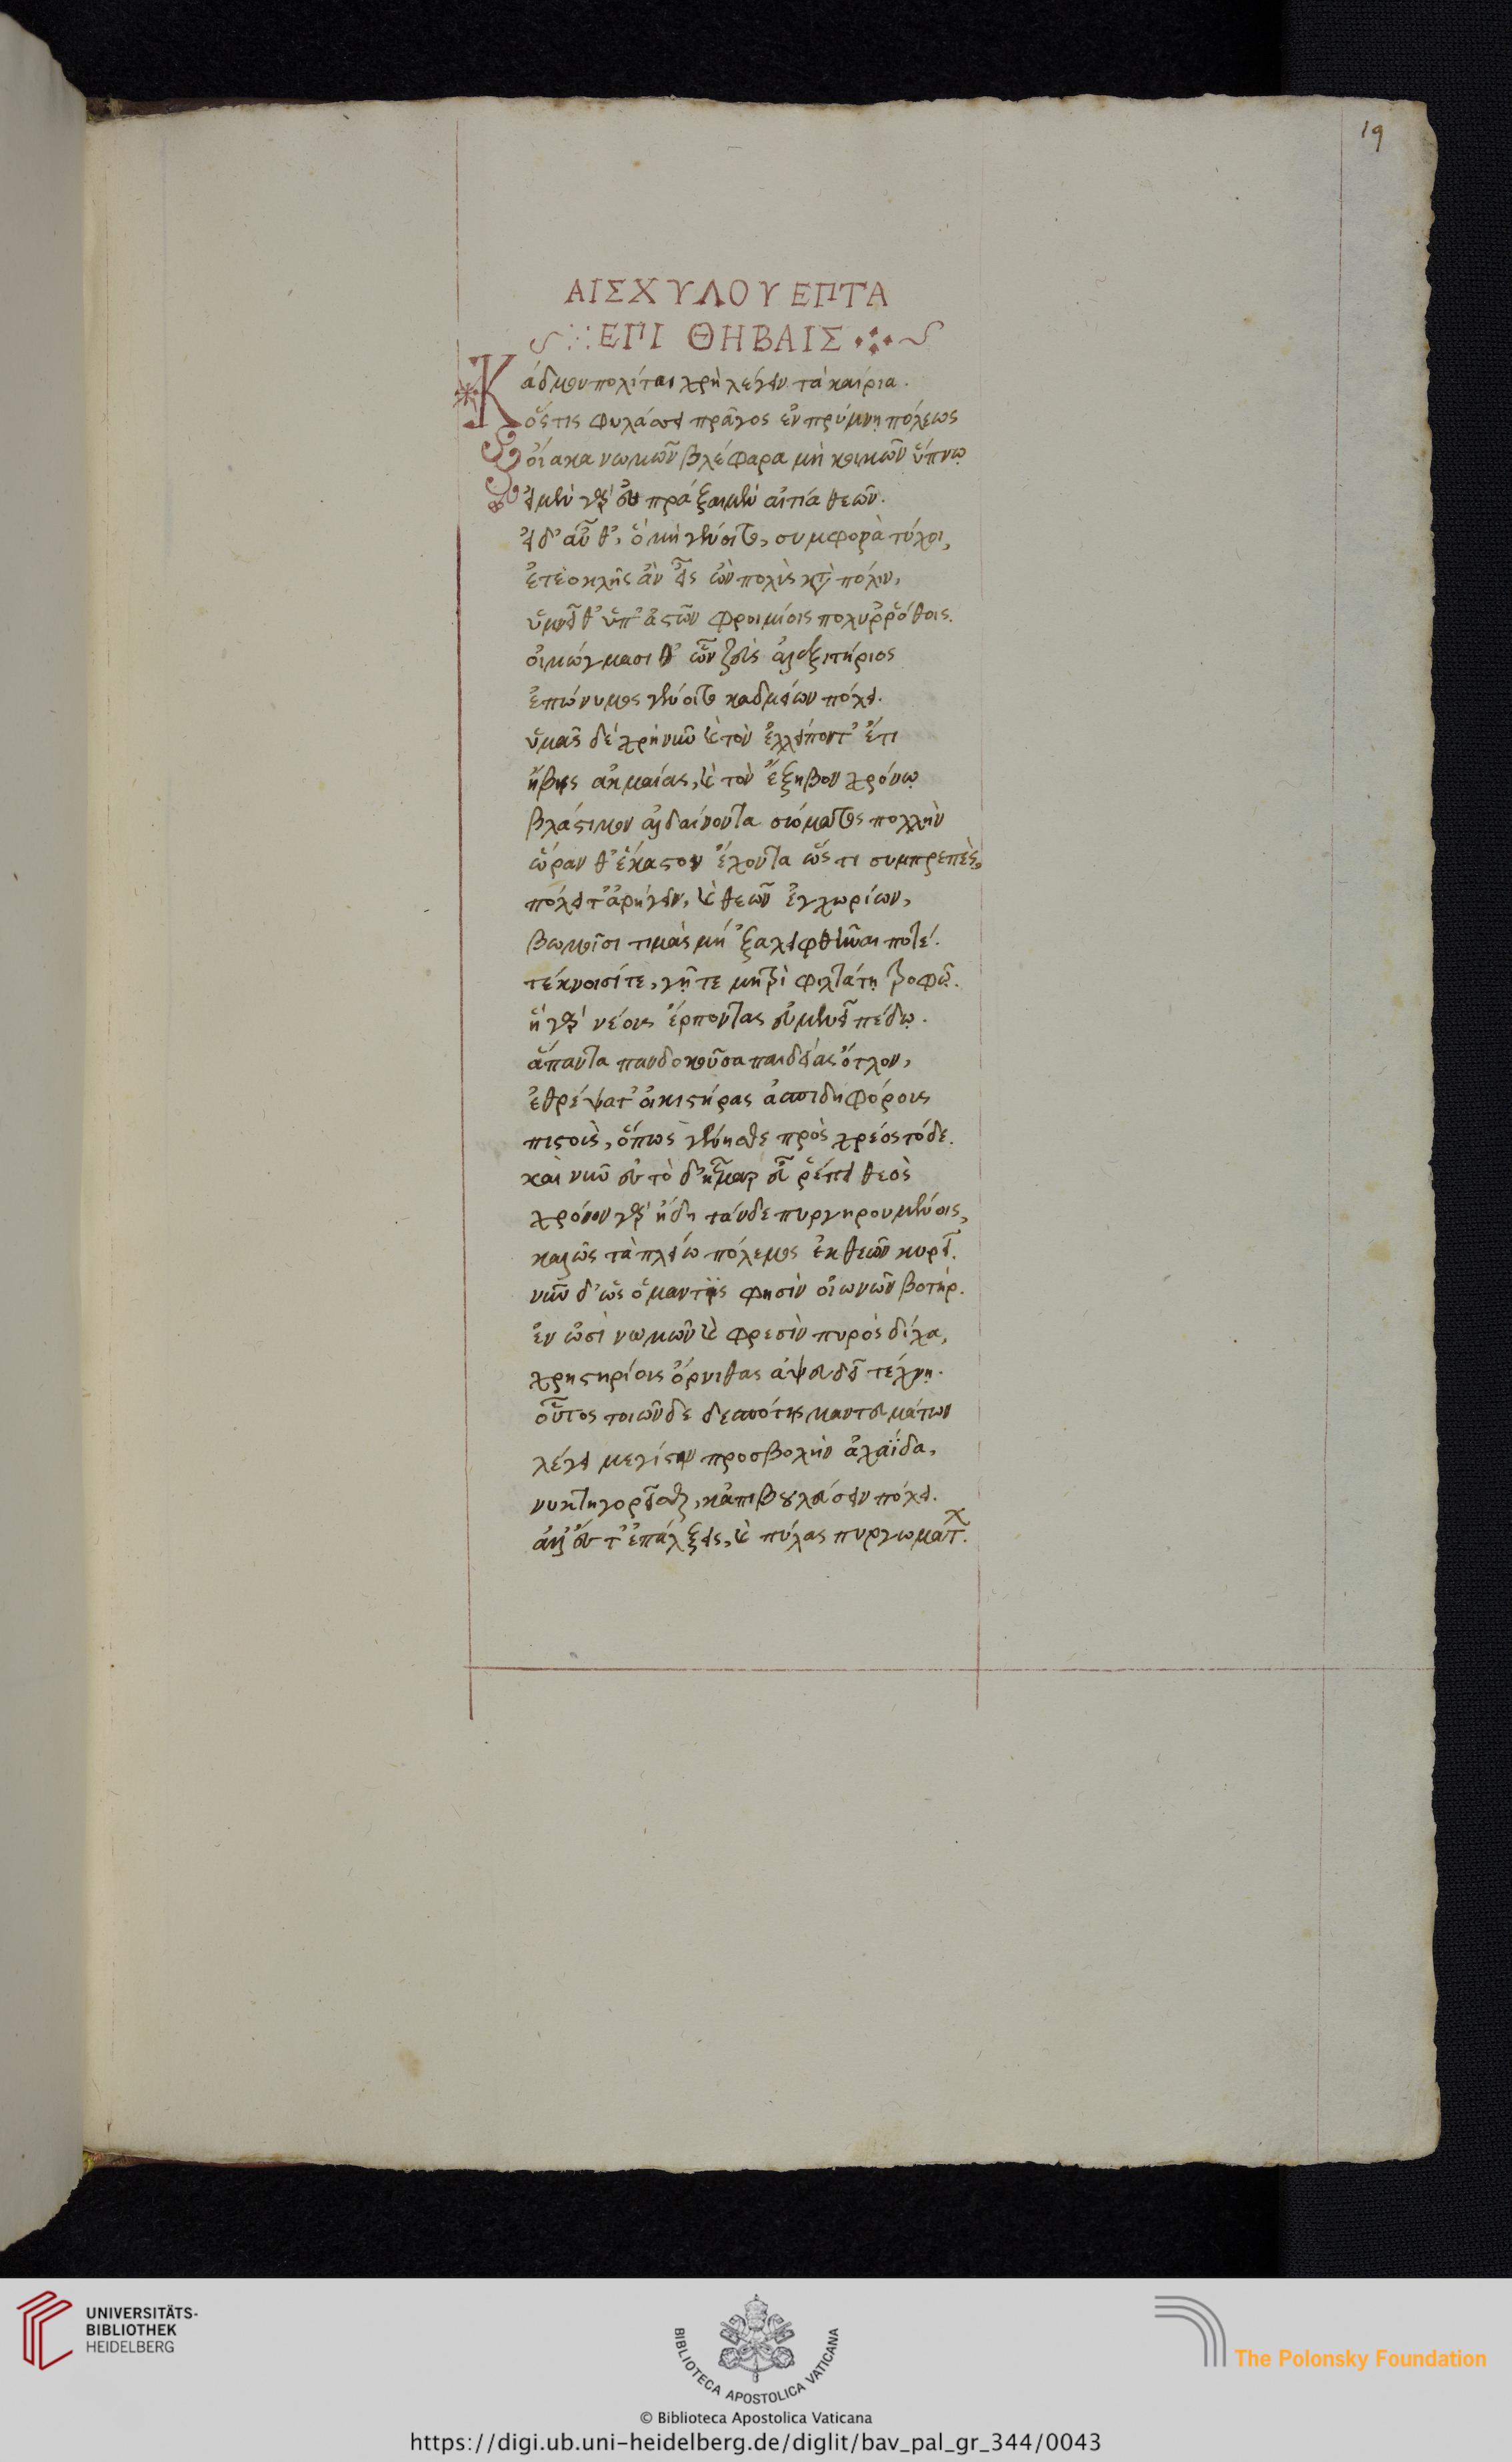 19
ΑΙΣΧΥΛΟΥ ΕΠΤΑ
ΕΠΙ ΘΗΒΑΙΣ
Κάδμου πολῖται χρὴ λέγειν τὰ καίρια.
ὅστις φυλάσσει πρᾶγος ἐν πρύμνῃ πόλεως
οἴακα νωμῶν βλέφαρα μὴ κοιμῶν ὕπνῳ
εἰ μὲν γὰρ εὖ πράξαιμεν αἰτία θεῶν.
εἰ δ' αὖθ', ὃ μὴ γένοιτο, συμφορὰ τύχοι,
ἐτεοκλῆς ἂν εἷς ὢν πολὺς κατὰ πόλιν,
ὑμνεῖθ' ὑπ' ἀστῶν φροιμίοις πολυῤῥόθοις.
οἰμώγμασί θ' ὧν ζεὺς ἀλεξιτήριος
ἐπώνυμος γένοιτο καδμείων πόλει.
ὑμᾶς δὲ χρὴ νῦν καὶ τὸν ἐλλείποντ' ἔτι
ἥβης ἀκμαίας, καὶ τὸν ἔξηβον χρόνῳ
βλάστιμον ἀλδαίνοντα σώματος πολλὴν
ὥραν θ' ἕκαστον ἔχοντα ὥς τι συμπρεπὲς,
πόλει τ' ἀρήγειν, καὶ θεῶν ἐγχωρίων,
βωμοῖσι τιμὰς μὴ 'ξαλειφθῆναι ποτέ.
τέκνοισί τε, γῇ τε μητρὶ φιλτάτῃ τροφῷ.
ἡ γὰρ νέους ἕρποντας εὐμενεῖ πέδῳ.
ἅπαντα πανδοκοῦσα παιδείας ὄτλον,
ἐθρέψατ' οἰκιστήρας ἀσπιδηφόρους
πιστοὺς, ὅπως γένησθε πρὸς χρέος τόδε.
καὶ νῦν εὐ τὸ δ' ἦμαρ εὖ ῥέπει θεὸς
χρόνον γὰρ ἤδη τάνδε πυργηρουμένοις,
καλῶς τὰ πλείω πόλεμος ἐκ θεῶν κυρεῖ.
νῦν δ' ὡς ὁ μάντις φησὶν οἰωνῶν βοτήρ.
ἐν ὠσὶ νωμῶν καὶ φρεσὶν πυρὸς δίχα,
χρηστηρίους ὄρνιθας ἀψευδεῖ τέχνῃ.
οὗτος τοιῶνδε δεσπότης μαντευμάτων
λέγει μεγίστην προσβολὴν ἀχαΐδα,
νυκτηγορεῖσθαι, κἀπιβουλεύσειν πόλει.
ἀλλ' εὔ τ' ἐπάλξεις, καὶ πύλας πυργωμάτ.
UNIVERSITÄTS-
BIBLIOTHEK
HEIDELBERG
BIBLIOTECA APOSTOLICA VATICANA
The Polonsky Foundation
© Biblioteca Apostolica Vaticana
https://digi.ub.uni-heidelberg.de/diglit/bav_pal_gr_344/0043